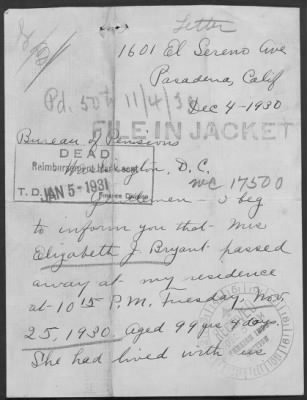 Letter
1601 El Sereno Ave
Pasadena, Calif
Pd. 50th 11/4/30
Dec 4-1930
FILE IN JACKET
Bureau of Pensions
DEAD
Washington, D.C.
Reimbursement blank sent
WC 17500
T.D. JAN 5-1931
Finance Division
Gentlemen - I beg
to inform you that Mrs
Elizabeth J. Bryant passed
away at my residence
at 10 15 P.M. Tuesday, Nov,
25, 1930. aged 99 yrs 4 days.
She had lived with us